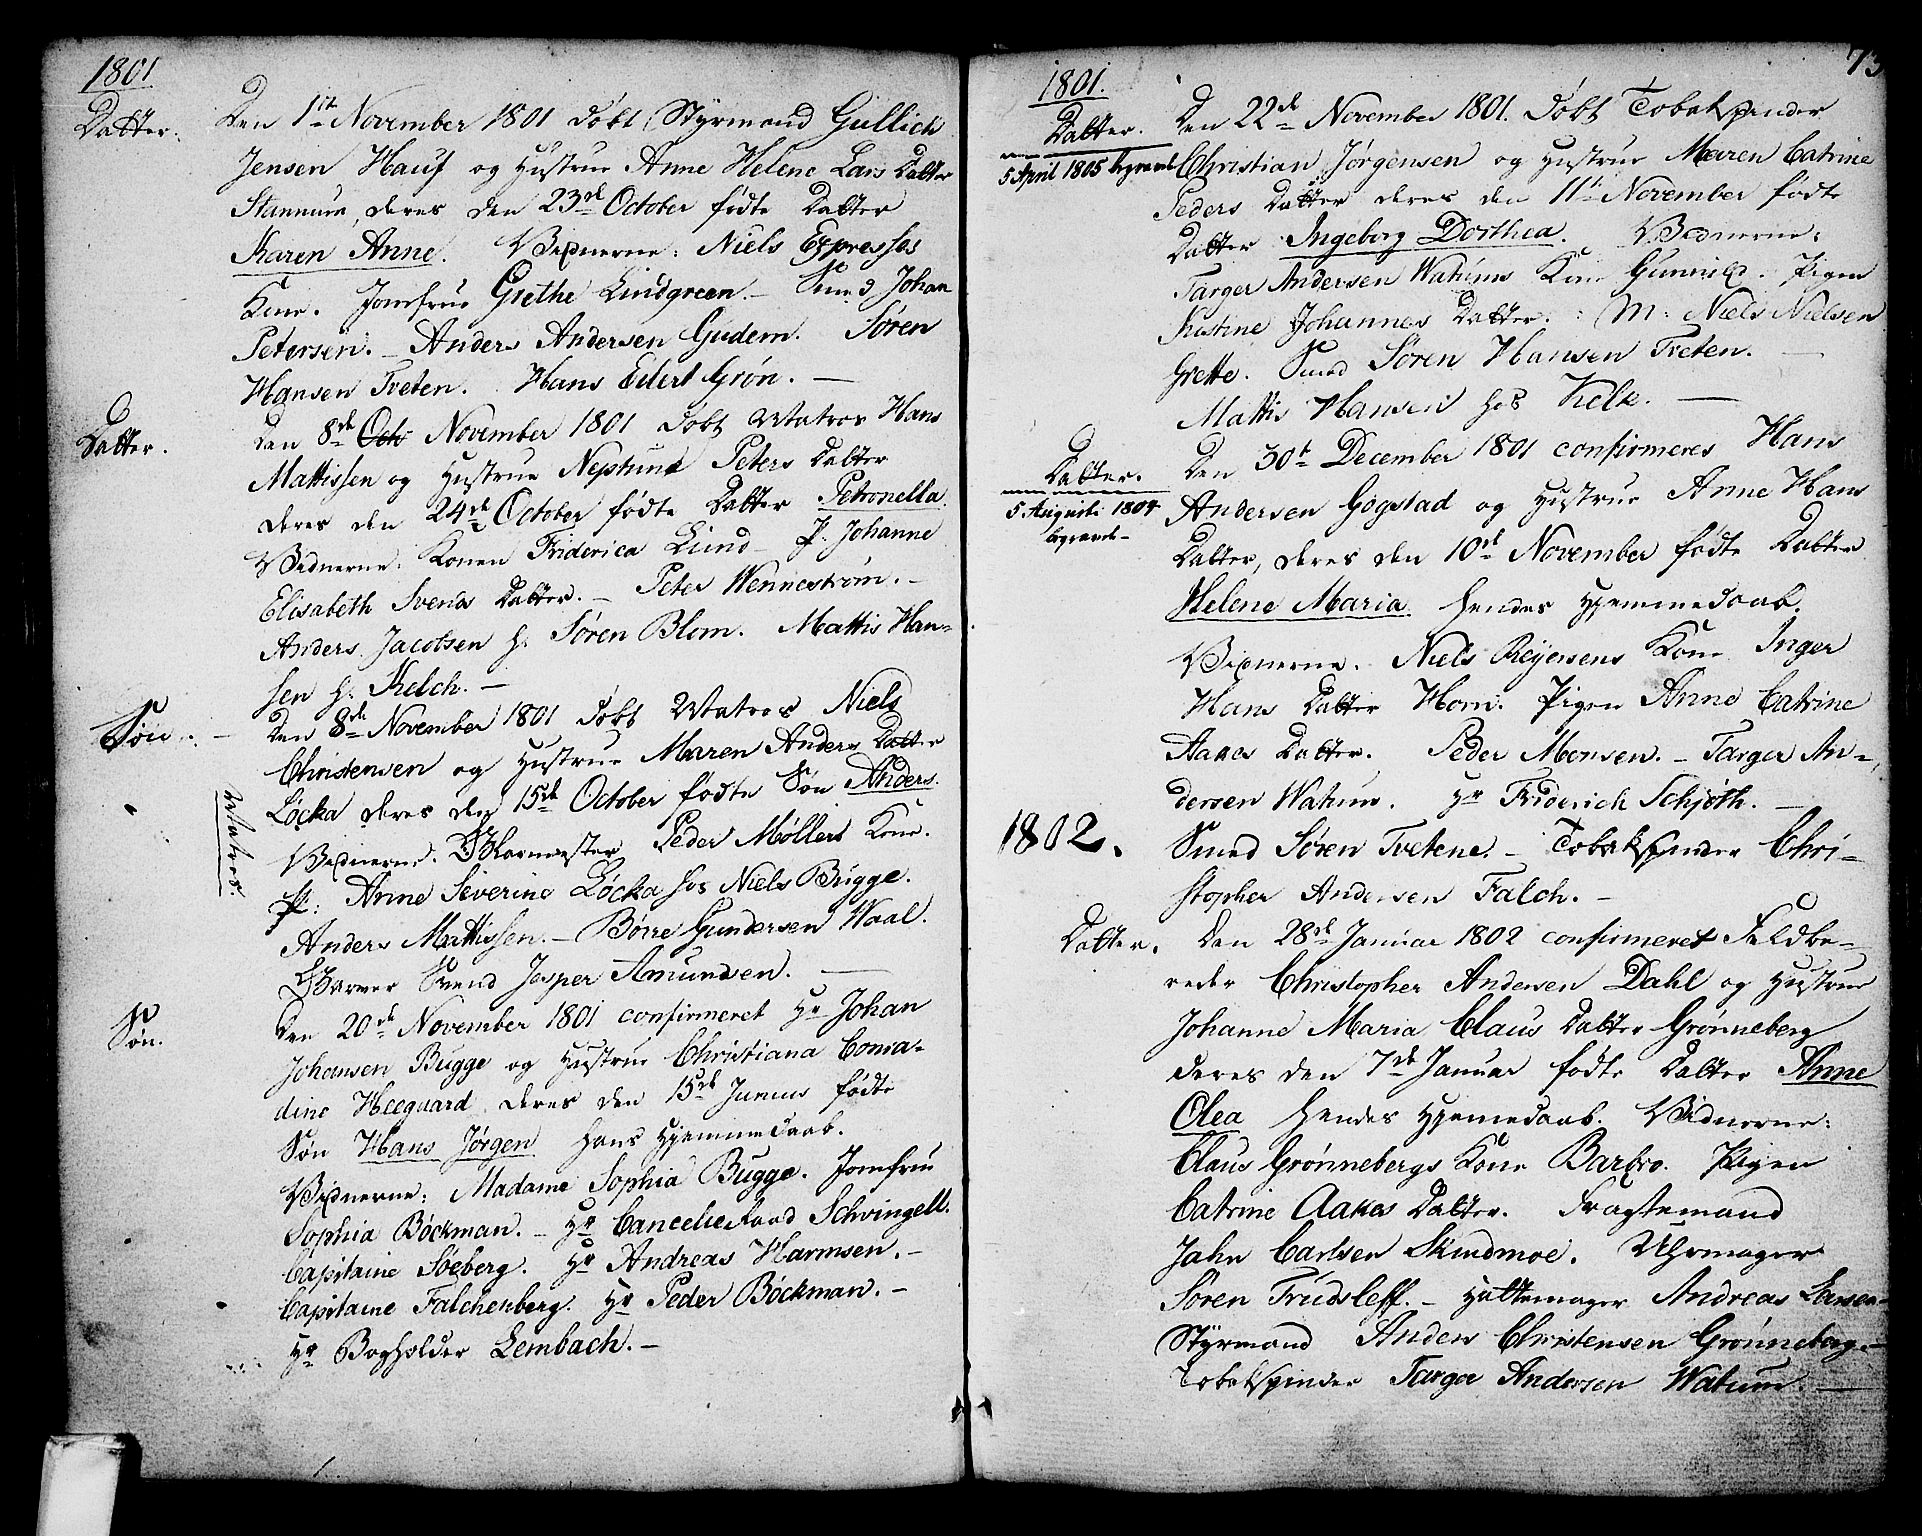 1801
Datter.
Den 1ste November 1801 døbt Styrmand Gullich
Jensen Hauf og Hustrue Anne Helene Lars Datter
Stannum, deres den 23de October fødte Datter
Karen Anne. Vidnerne: Niels Expresses
Kone. Jomfrue Grethe Lindgreen. – Smed Johan
Petersen. – Anders Andersen Gudem. Søren
Hansen Tveten. Hans Eilert Grøn. –
Datter.
Den 8de Octo November 1801 døbt Matros Hans
Mattissen og Hustrue Neptuna Peters Datter
deres den 24de October fødte Datter Petronella.
Vidnerne: Konen Friderica Lund – P. Johanne
Elisabeth Svends Datter. – Peter Wennestrøm. –
Anders Jacobsen h: Søren Blom. Mattis Han-
sen h: Kelch. –
Søn.
Den 8de November 1801 døbt Matros Niels
Christensen og Hustrue Maren Anders Datter
Løcka deres den 15de October fødte Søn Anders.
Matros.
Vidnerne. Peder Møllers Kone.
P: Anne Severine Løcka hos Niels Brigge.
Anders Mattissen. – Børre Gundersen Waal.
Svend Jesper Amundsen. –
Søn.
Den 20de November 1801 confirmeret Hr Johan
Johansen Bugge og Hustrue Christiana Conra-
dine Heeguard deres den 15de Junius fødte
Søn Hans Jørgen hans Hjemmedaab.
Vidnerne: Madame Sophia Bugge. Jomfrue
Sophia Böckman. – Hr Cancelieraad Schvingell.
Capitaine Søeberg. Hr Andreas Harmsen. –
Capitaine Falchenberg. Hr Peder Böckman. –
Hr Bogholder Lembach. –
73
1801.
Datter.
5 April 1805 begravet
Den 22de November 1801. døbt Tobakspinder
Christian Jørgensen og Hustrue Maren Catrine
Peders Datter deres den 11te November fødte
Datter Ingeborg Dorthea. Vidnerne:
Targer Andersen Watums Kone Gunnild. Pigen
Kistine Johannes Datter. : M: Niels Nielsen
Grette. Smed Søren Hansen Tveten. –
Mattis Hansen hos Kelk. –
Datter.
5 Augusti 1804
begravet –
Den 30te December 1801 confirmeres Hans
Andersen Gogstad og Hustrue Anne Hans
Datter, deres den 10de November fødte Datter
Helene Maria hendes Hjemmedaab.
Vidnerne. Niels Reyersens Kone Inger
Hans Datter Horn. Pigen Anne Catrine
Aakes Datter. Peder Monsen. – Targer An-
dersen Watum. Hr Friderich Schjøth. –
1802.
Smed Søren Tvetene. – Tobakspinder Chri-
stopher Andersen Falch. –
Datter.
Den 28de Januar 1802 confirmeret Feldbe-
reder Christopher Andersen Dahl og Hustrue
Johanne Maria Claus Datter Grønneberg
deres den 7de Januar fødte Datter Anne
Olea hendes Hjemmedaab. Vidnerne:
Claus Grønnebergs Kone Barbro. Pigen
Catrine Aakes Datter. Fragtemand
Jahn Carlsen Skindmoe. Uhrmager
Søren Trudsleff. – Hattemager Andreas Larsen –
Styrmand Anders Christensen Grønneberg. –
Tobakspinder Targer Andersen Watum. –